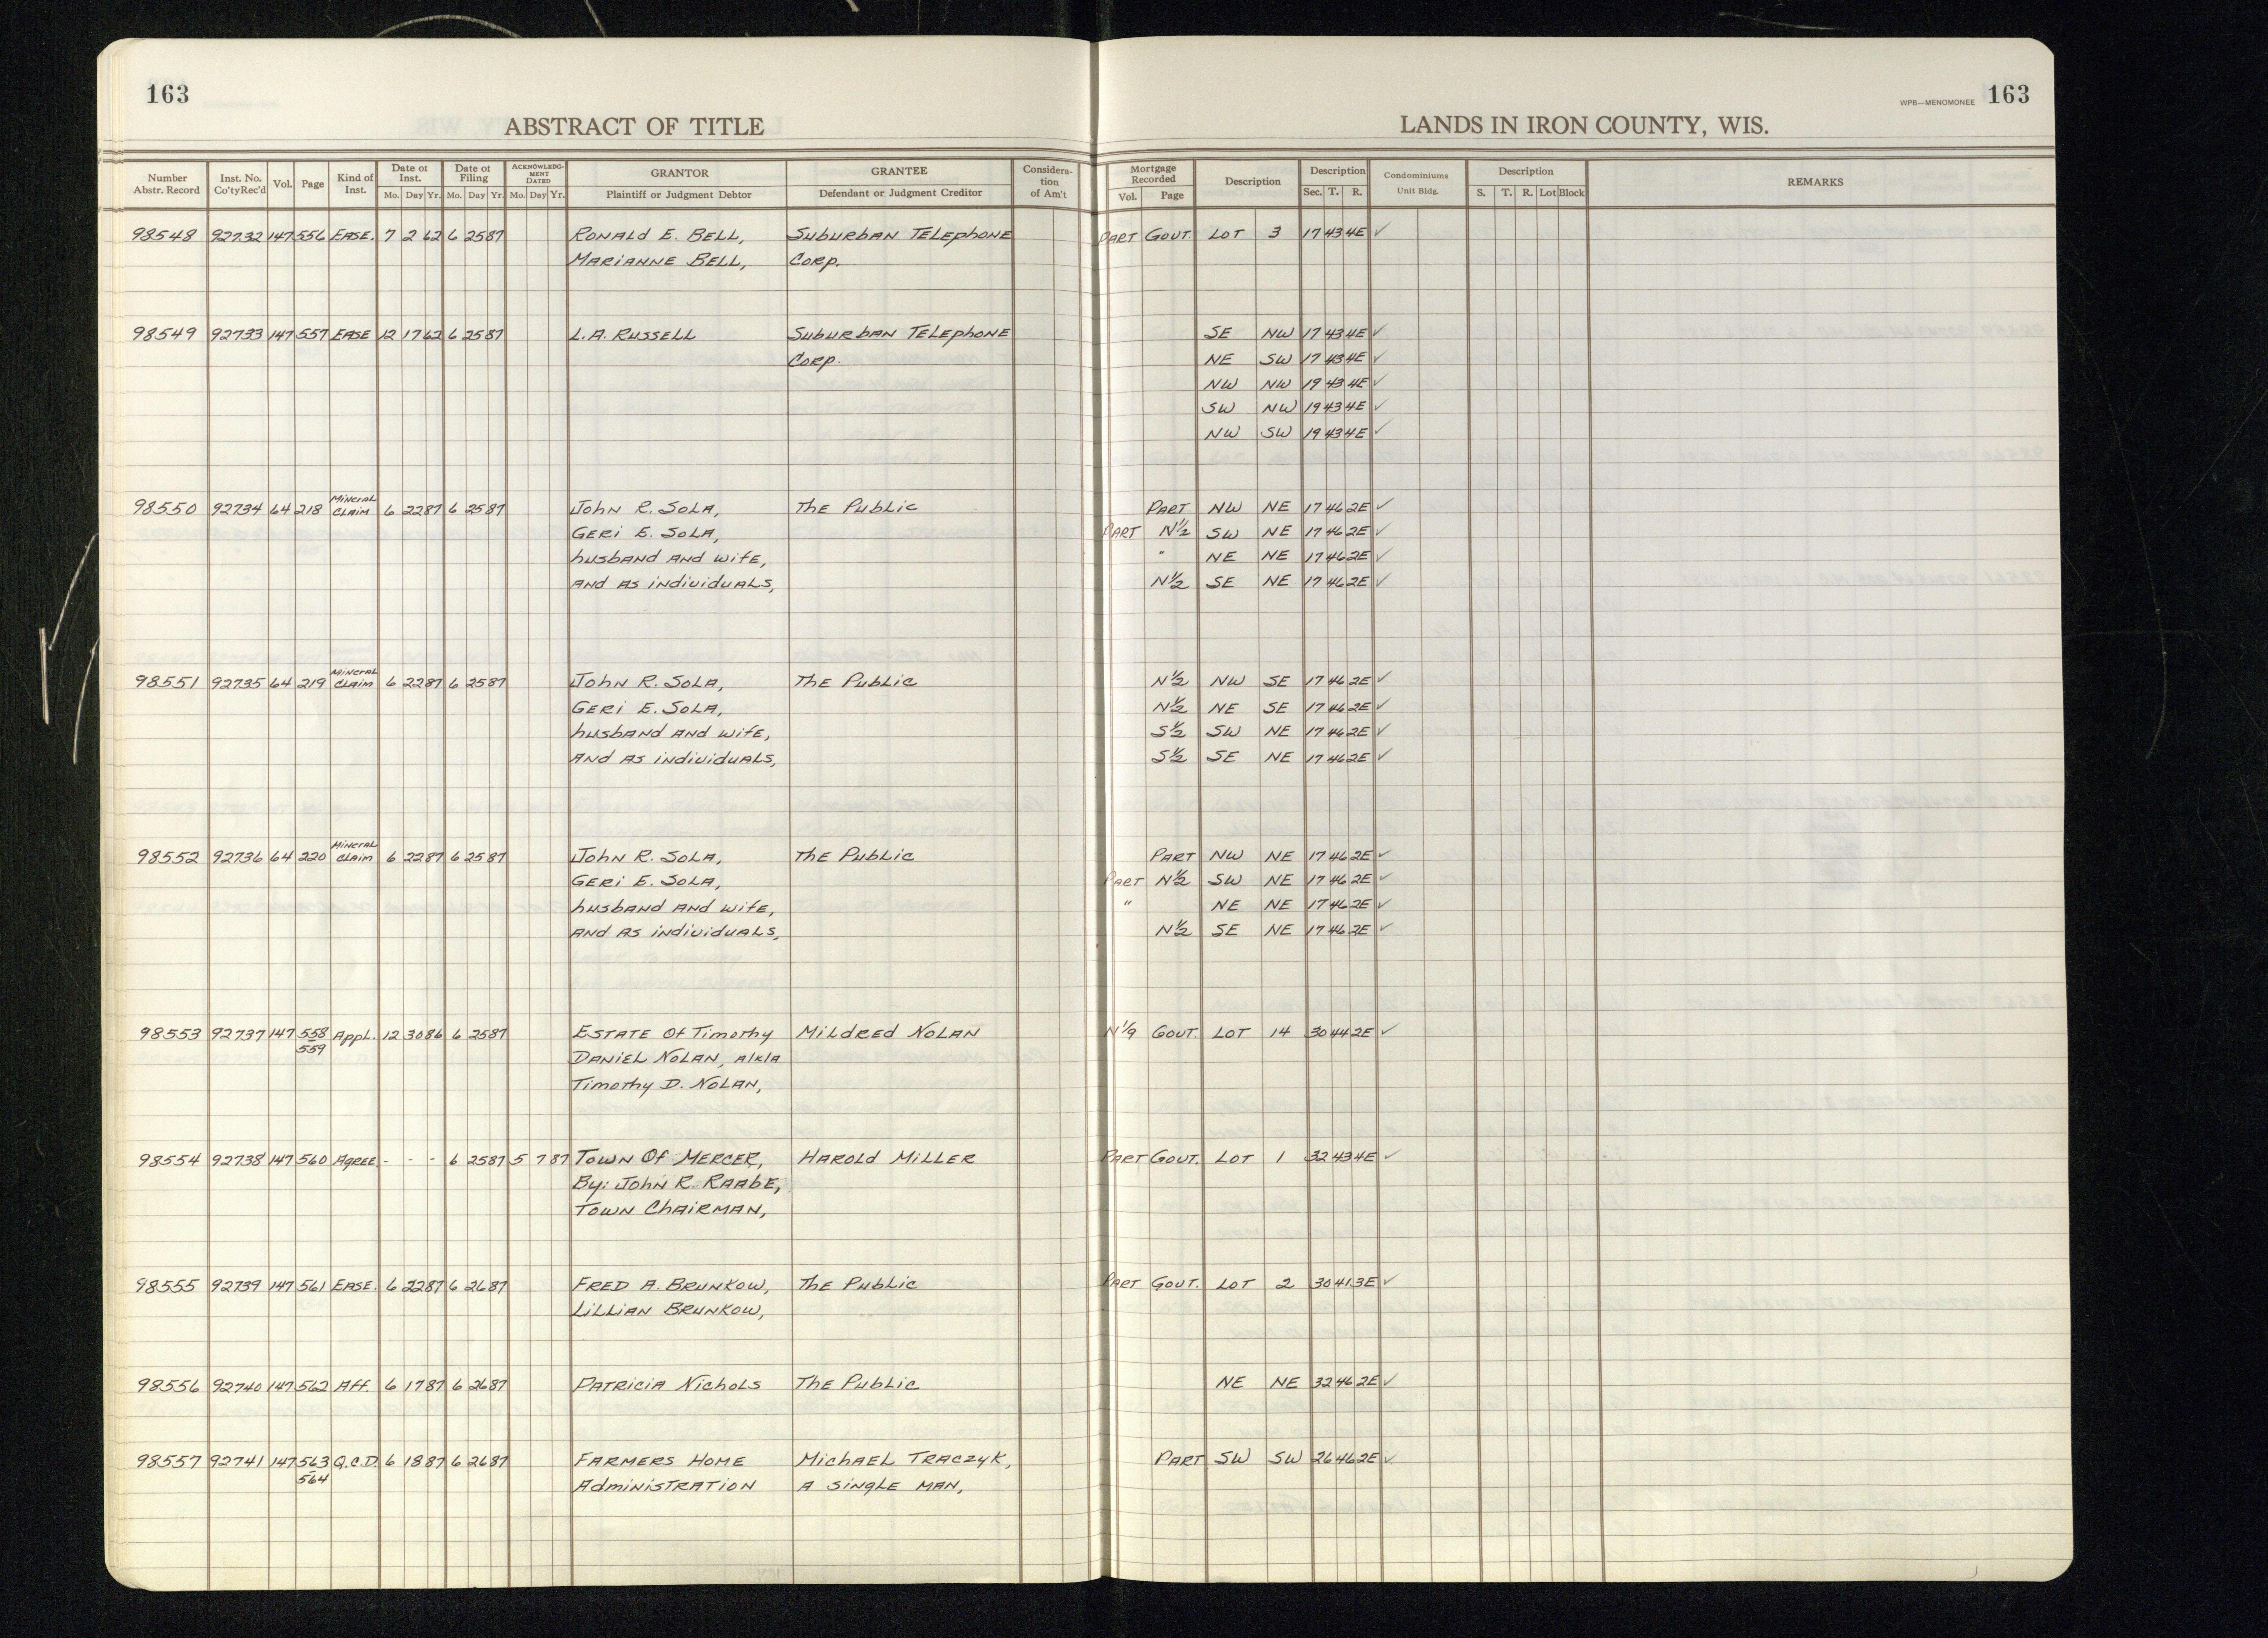 163
ABSTRACT OF TITLE
LANDS IN IRON COUNTY, WIS.
WPB—MENOMONEE 163
Number Abstr. Record | Inst. No. Co'tyRec'd | Vol. | Page | Kind of Inst. | Date of Inst. Mo. Day Yr. | Date of Filing Mo. Day Yr. | ACKNOWLEDG-MENT DATED Mo. Day Yr. | GRANTOR Plaintiff or Judgment Debtor | GRANTEE Defendant or Judgment Creditor | Considera-tion of Am't | Mortgage Recorded Vol. Page | Description | Description Sec. T. R. | Condominiums Unit Bldg. | Description S. T. R. Lot Block | REMARKS
98548 92732 147 556 EASE. 7 2 62 6 25 87 RONALD E. BELL, SUBURBAN TELEPHONE PART GOVT. LOT 3 17 43 4E ✓
MARIANNE BELL, CORP.
98549 92733 147 557 EASE 12 17 62 6 25 87 L.A. RUSSELL SUBURBAN TELEPHONE SE NW 17 43 4E ✓
CORP. NE SW 17 43 4E ✓
NW NW 19 43 4E ✓
SW NW 19 43 4E ✓
NW SW 19 43 4E ✓
98550 92734 64 218 MINERAL CLAIM 6 22 87 6 25 87 JOHN R. SOLA, THE PUBLIC PART NW NE 17 46 2E ✓
GERI E. SOLA, PART N½ SW NE 17 46 2E ✓
HUSBAND AND WIFE, " NE NE 17 46 2E ✓
AND AS INDIVIDUALS, N½ SE NE 17 46 2E ✓
98551 92735 64 219 MINERAL CLAIM 6 22 87 6 25 87 JOHN R. SOLA, THE PUBLIC N½ NW SE 17 46 2E ✓
GERI E. SOLA, N½ NE SE 17 46 2E ✓
HUSBAND AND WIFE, S½ SW NE 17 46 2E ✓
AND AS INDIVIDUALS, S½ SE NE 17 46 2E ✓
98552 92736 64 220 MINERAL CLAIM 6 22 87 6 25 87 JOHN R. SOLA, THE PUBLIC PART NW NE 17 46 2E ✓
GERI E. SOLA, PART N½ SW NE 17 46 2E ✓
HUSBAND AND WIFE, " NE NE 17 46 2E ✓
AND AS INDIVIDUALS, N½ SE NE 17 46 2E ✓
98553 92737 147 558 559 APPL. 12 30 86 6 25 87 ESTATE OF TIMOTHY MILDRED NOLAN N 1/9 GOVT. LOT 14 30 44 2E ✓
DANIEL NOLAN, A/K/A
TIMOTHY D. NOLAN,
98554 92738 147 560 AGREE. - - - 6 25 87 5 7 87 TOWN OF MERCER, HAROLD MILLER PART GOVT. LOT 1 32 43 4E ✓
BY: JOHN R. RAABE,
TOWN CHAIRMAN,
98555 92739 147 561 EASE. 6 22 87 6 26 87 FRED A. BRUNKOW, THE PUBLIC PART GOVT. LOT 2 30 41 3E ✓
LILLIAN BRUNKOW,
98556 92740 147 562 AFF. 6 17 87 6 26 87 PATRICIA NICHOLS THE PUBLIC NE NE 32 46 2E ✓
98557 92741 147 563 564 Q.C.D. 6 18 87 6 26 87 FARMERS HOME MICHAEL TRACZYK, PART SW SW 26 46 2E ✓
ADMINISTRATION A SINGLE MAN,